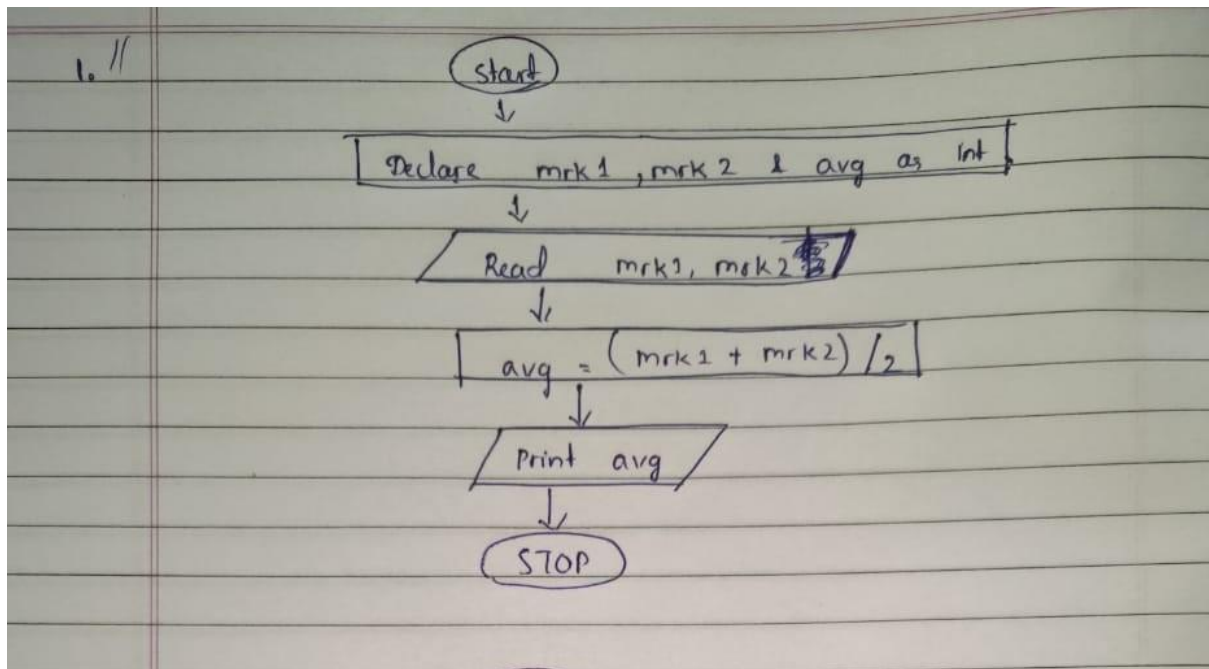 1. //
Start
Declare mrk 1, mrk 2 & avg as int
Read mrk1, mrk2
avg = (mrk1 + mrk2) /2
Print avg
STOP